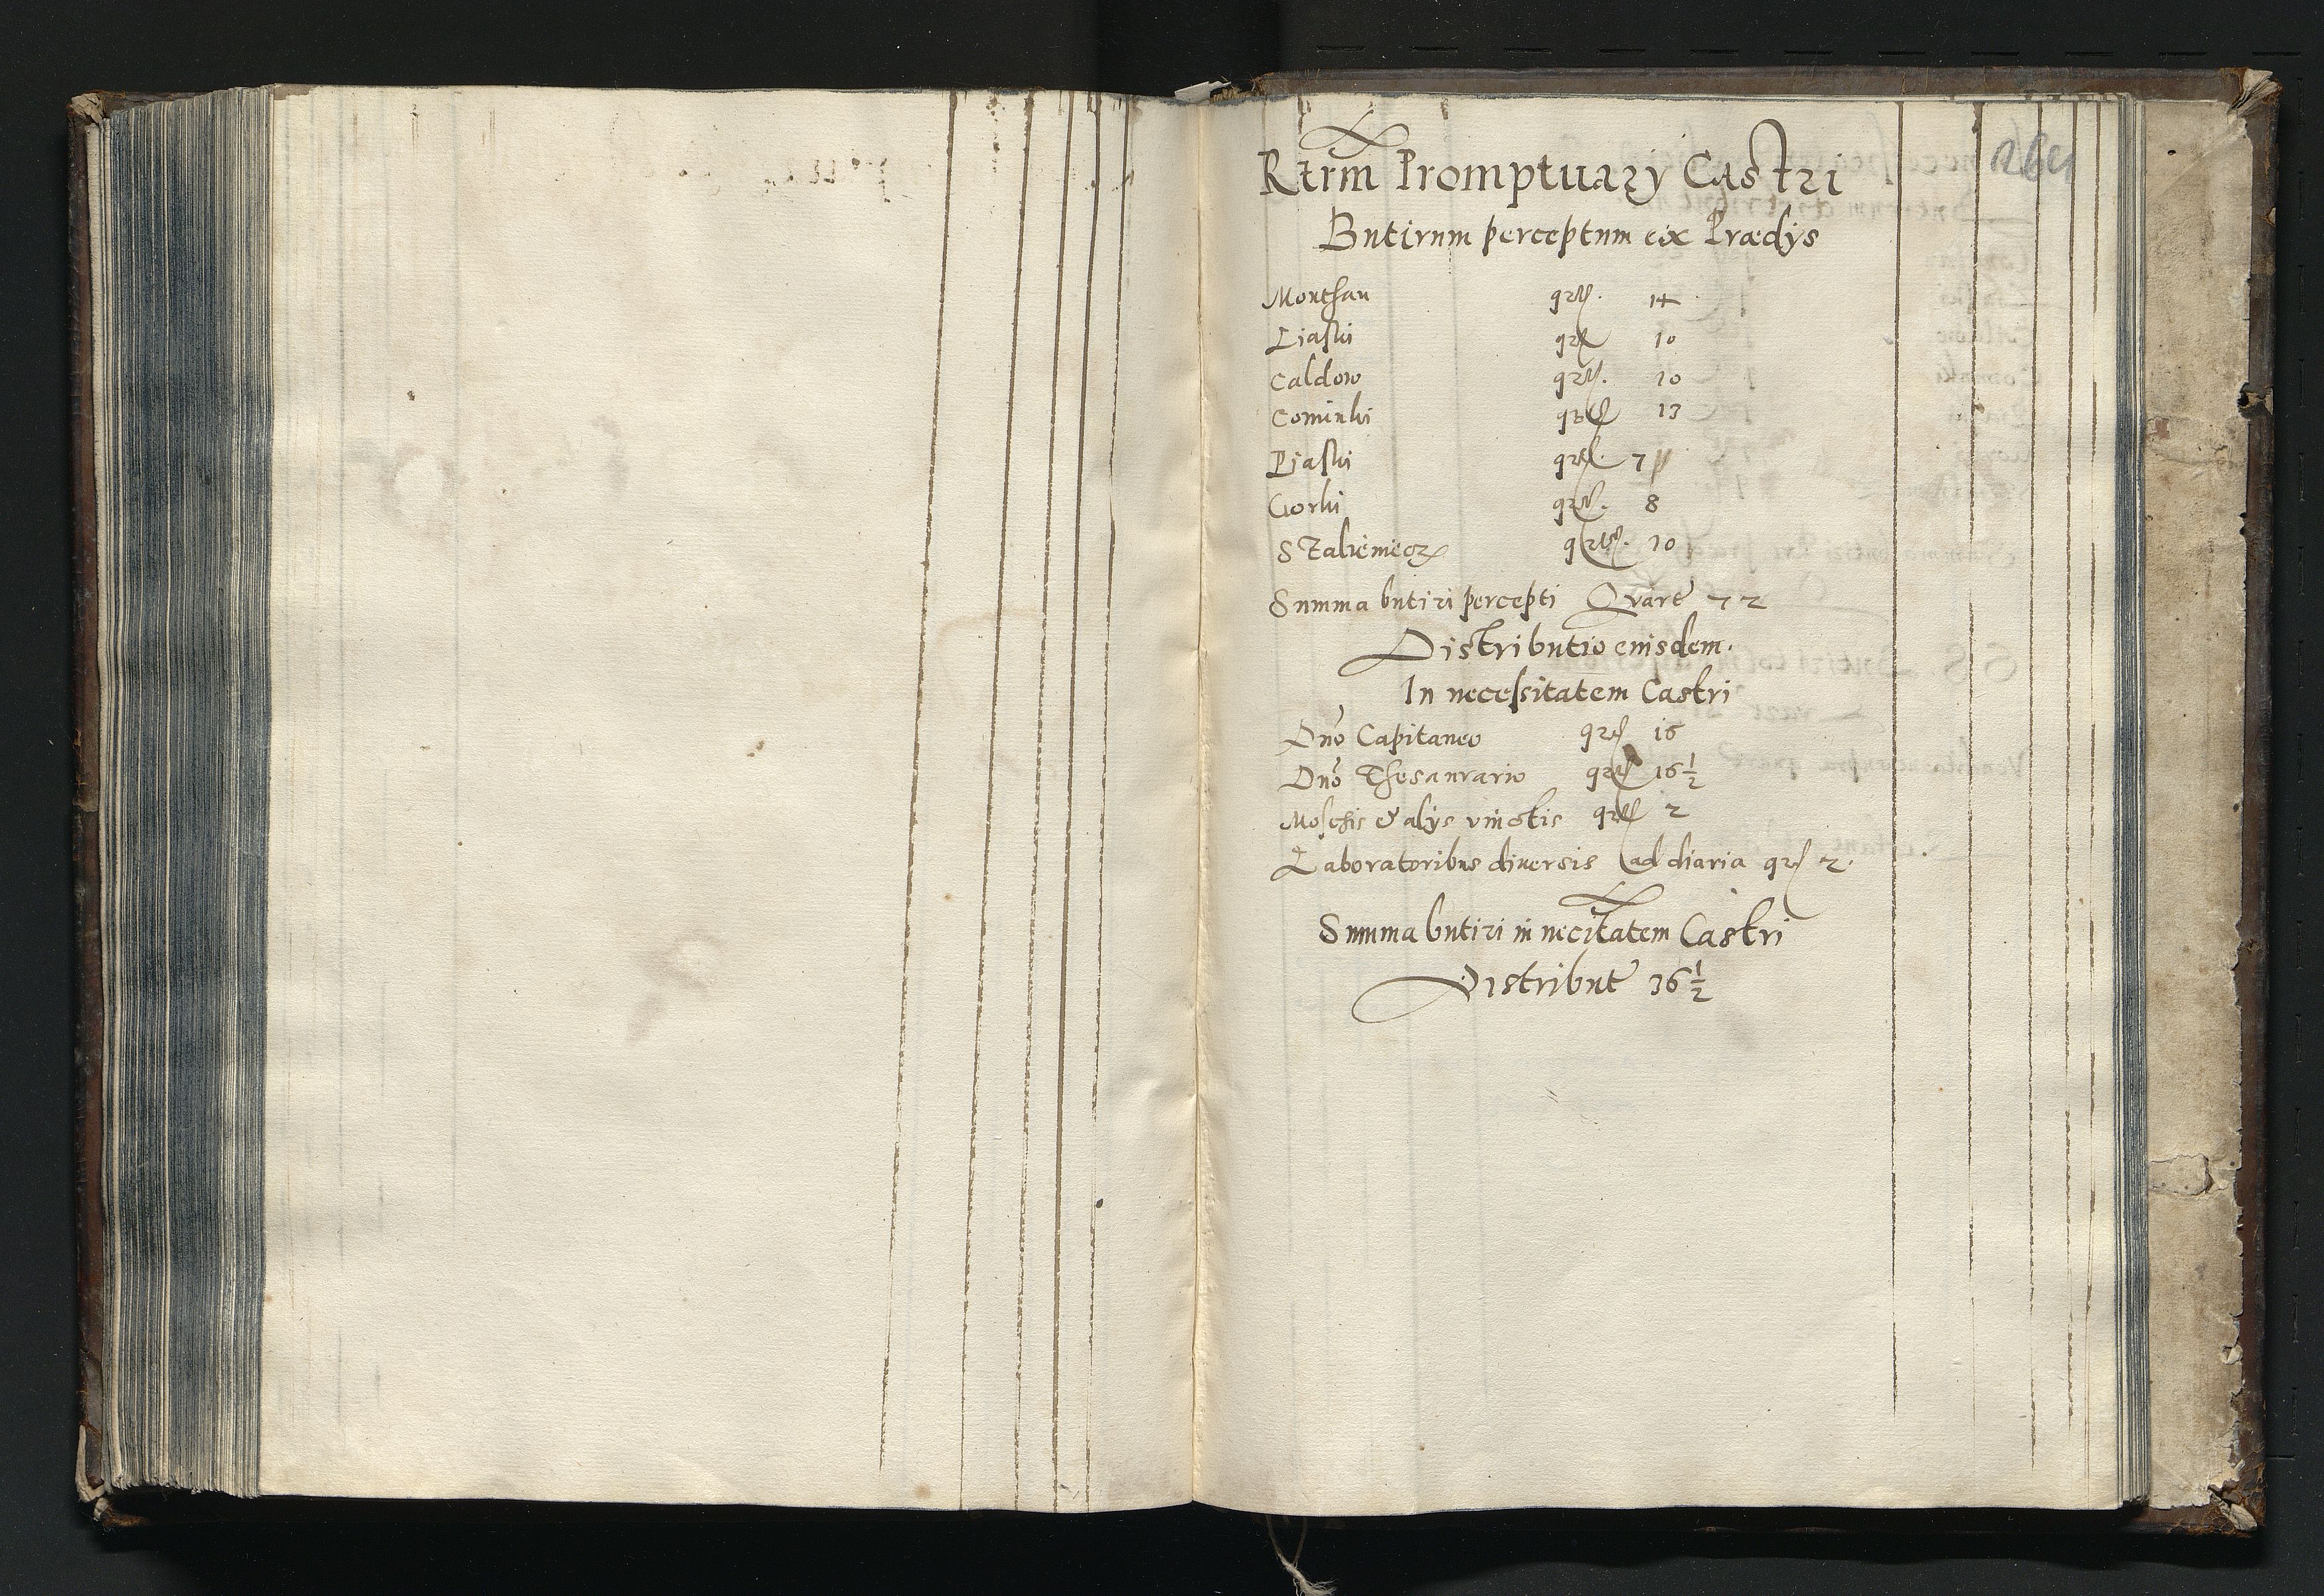 264
Rtrm Promptuary Castri
Butirum perceptum ex Prædys
Monthau qr 14
Liaski qr 10
Caldow qr 10
Cominki qr 13
Piaski qr 7
Gorki qr 8
Stalieniec qr 10
Summa butiri percepti Quart 72
Distributio eiusdem.
In necessitatem Castri
Dno Capitaneo qr 16
Dno Thesaurario qr 16 1/2
Moschis & alys vinctis qr 2
Laboratoribus diuersis ad diaria qr 2.
Summa butiri in necitatem Castri
Distribut 36 1/2